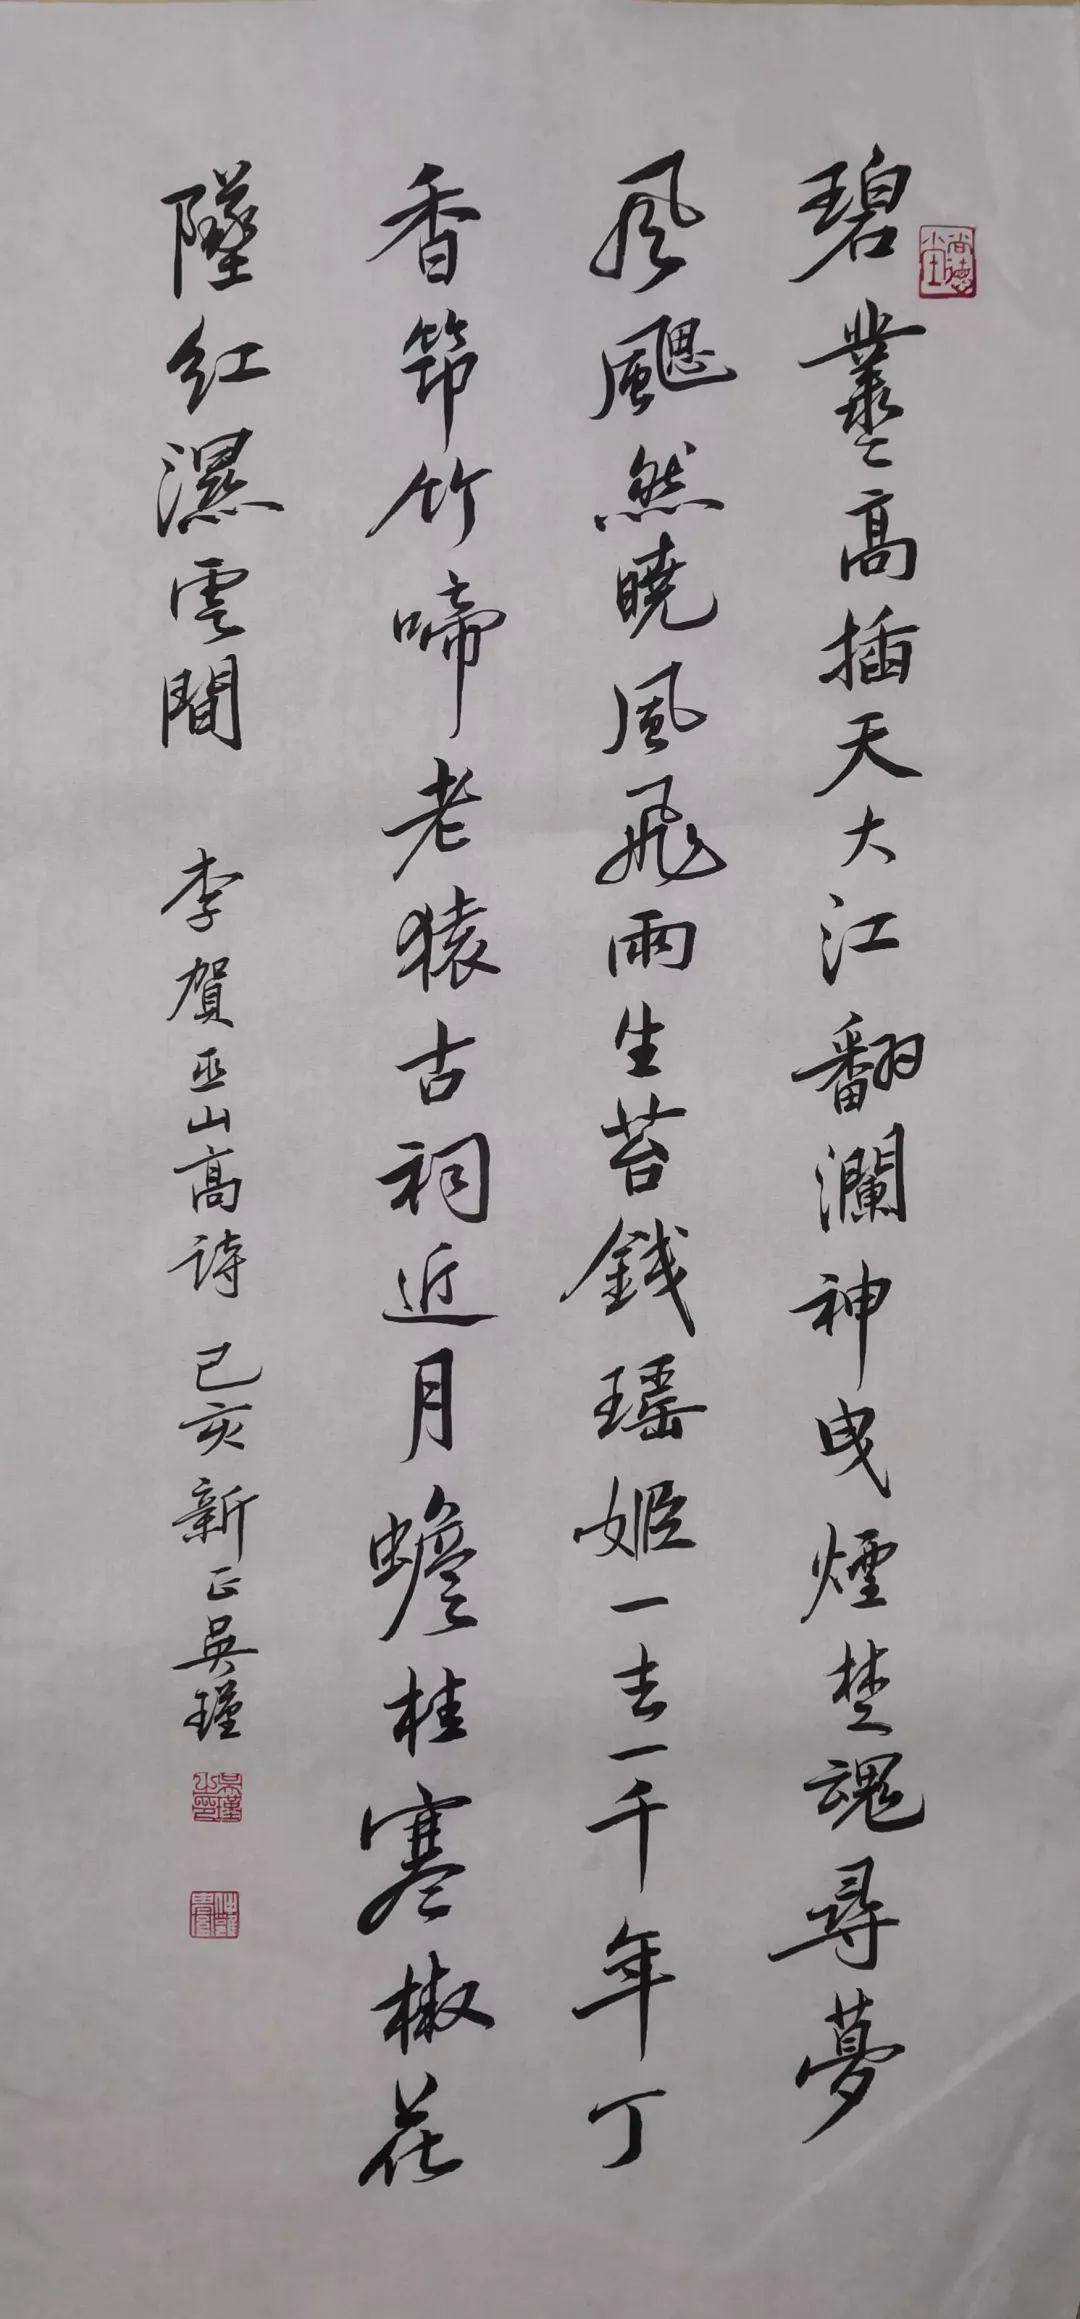 碧叢高插天大江翻瀾神曳煙楚魂尋夢
風颸然曉風飛雨生苔錢瑤姬一去一千年丁
香筇竹啼老猿古祠近月蟾桂寒椒花
墜紅濕雲間
李賀巫山高詩 己亥新正吳瑾